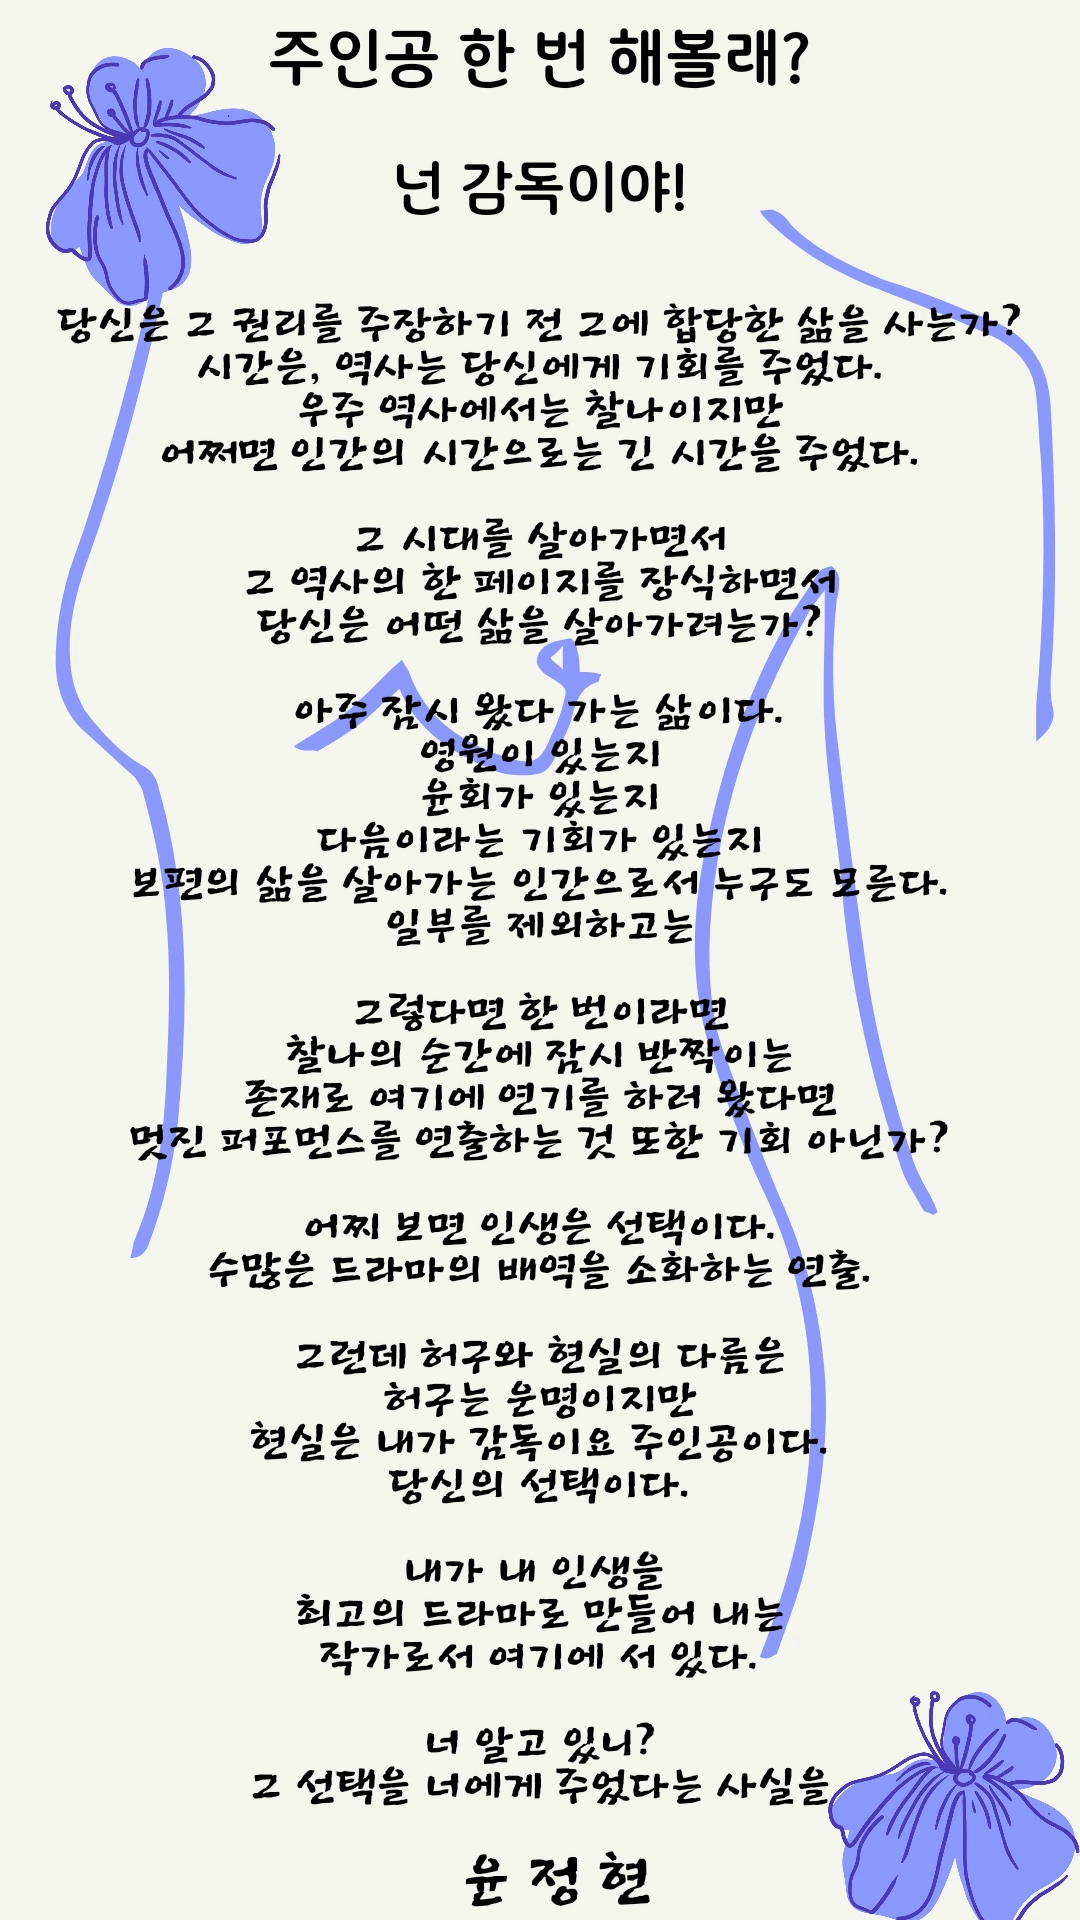 주인공 한 번 해볼래?
넌 감독이야!
당신은 그 권리를 주장하기 전 그에 합당한 삶을 사는가?
시간은, 역사는 당신에게 기회를 주었다.
우주 역사에서는 찰나이지만
어쩌면 인간의 시간으로는 긴 시간을 주었다.
그 시대를 살아가면서
그 역사의 한 페이지를 장식하면서
당신은 어떤 삶을 살아가려는가?
아주 잠시 왔다 가는 삶이다.
영원이 있는지
윤회가 있는지
다음이라는 기회가 있는지
보편의 삶을 살아가는 인간으로서 누구도 모른다.
일부를 제외하고는
그렇다면 한 번이라면
찰나의 순간에 잠시 반짝이는
존재로 여기에 연기를 하러 왔다면
멋진 퍼포먼스를 연출하는 것 또한 기회 아닌가?
어찌 보면 인생은 선택이다.
수많은 드라마의 배역을 소화하는 연출.
그런데 허구와 현실의 다름은
허구는 운명이지만
현실은 내가 감독이요 주인공이다.
당신의 선택이다.
내가 내 인생을
최고의 드라마로 만들어 내는
작가로서 여기에 서 있다.
너 알고 있니?
그 선택을 너에게 주었다는 사실을
윤 정 현